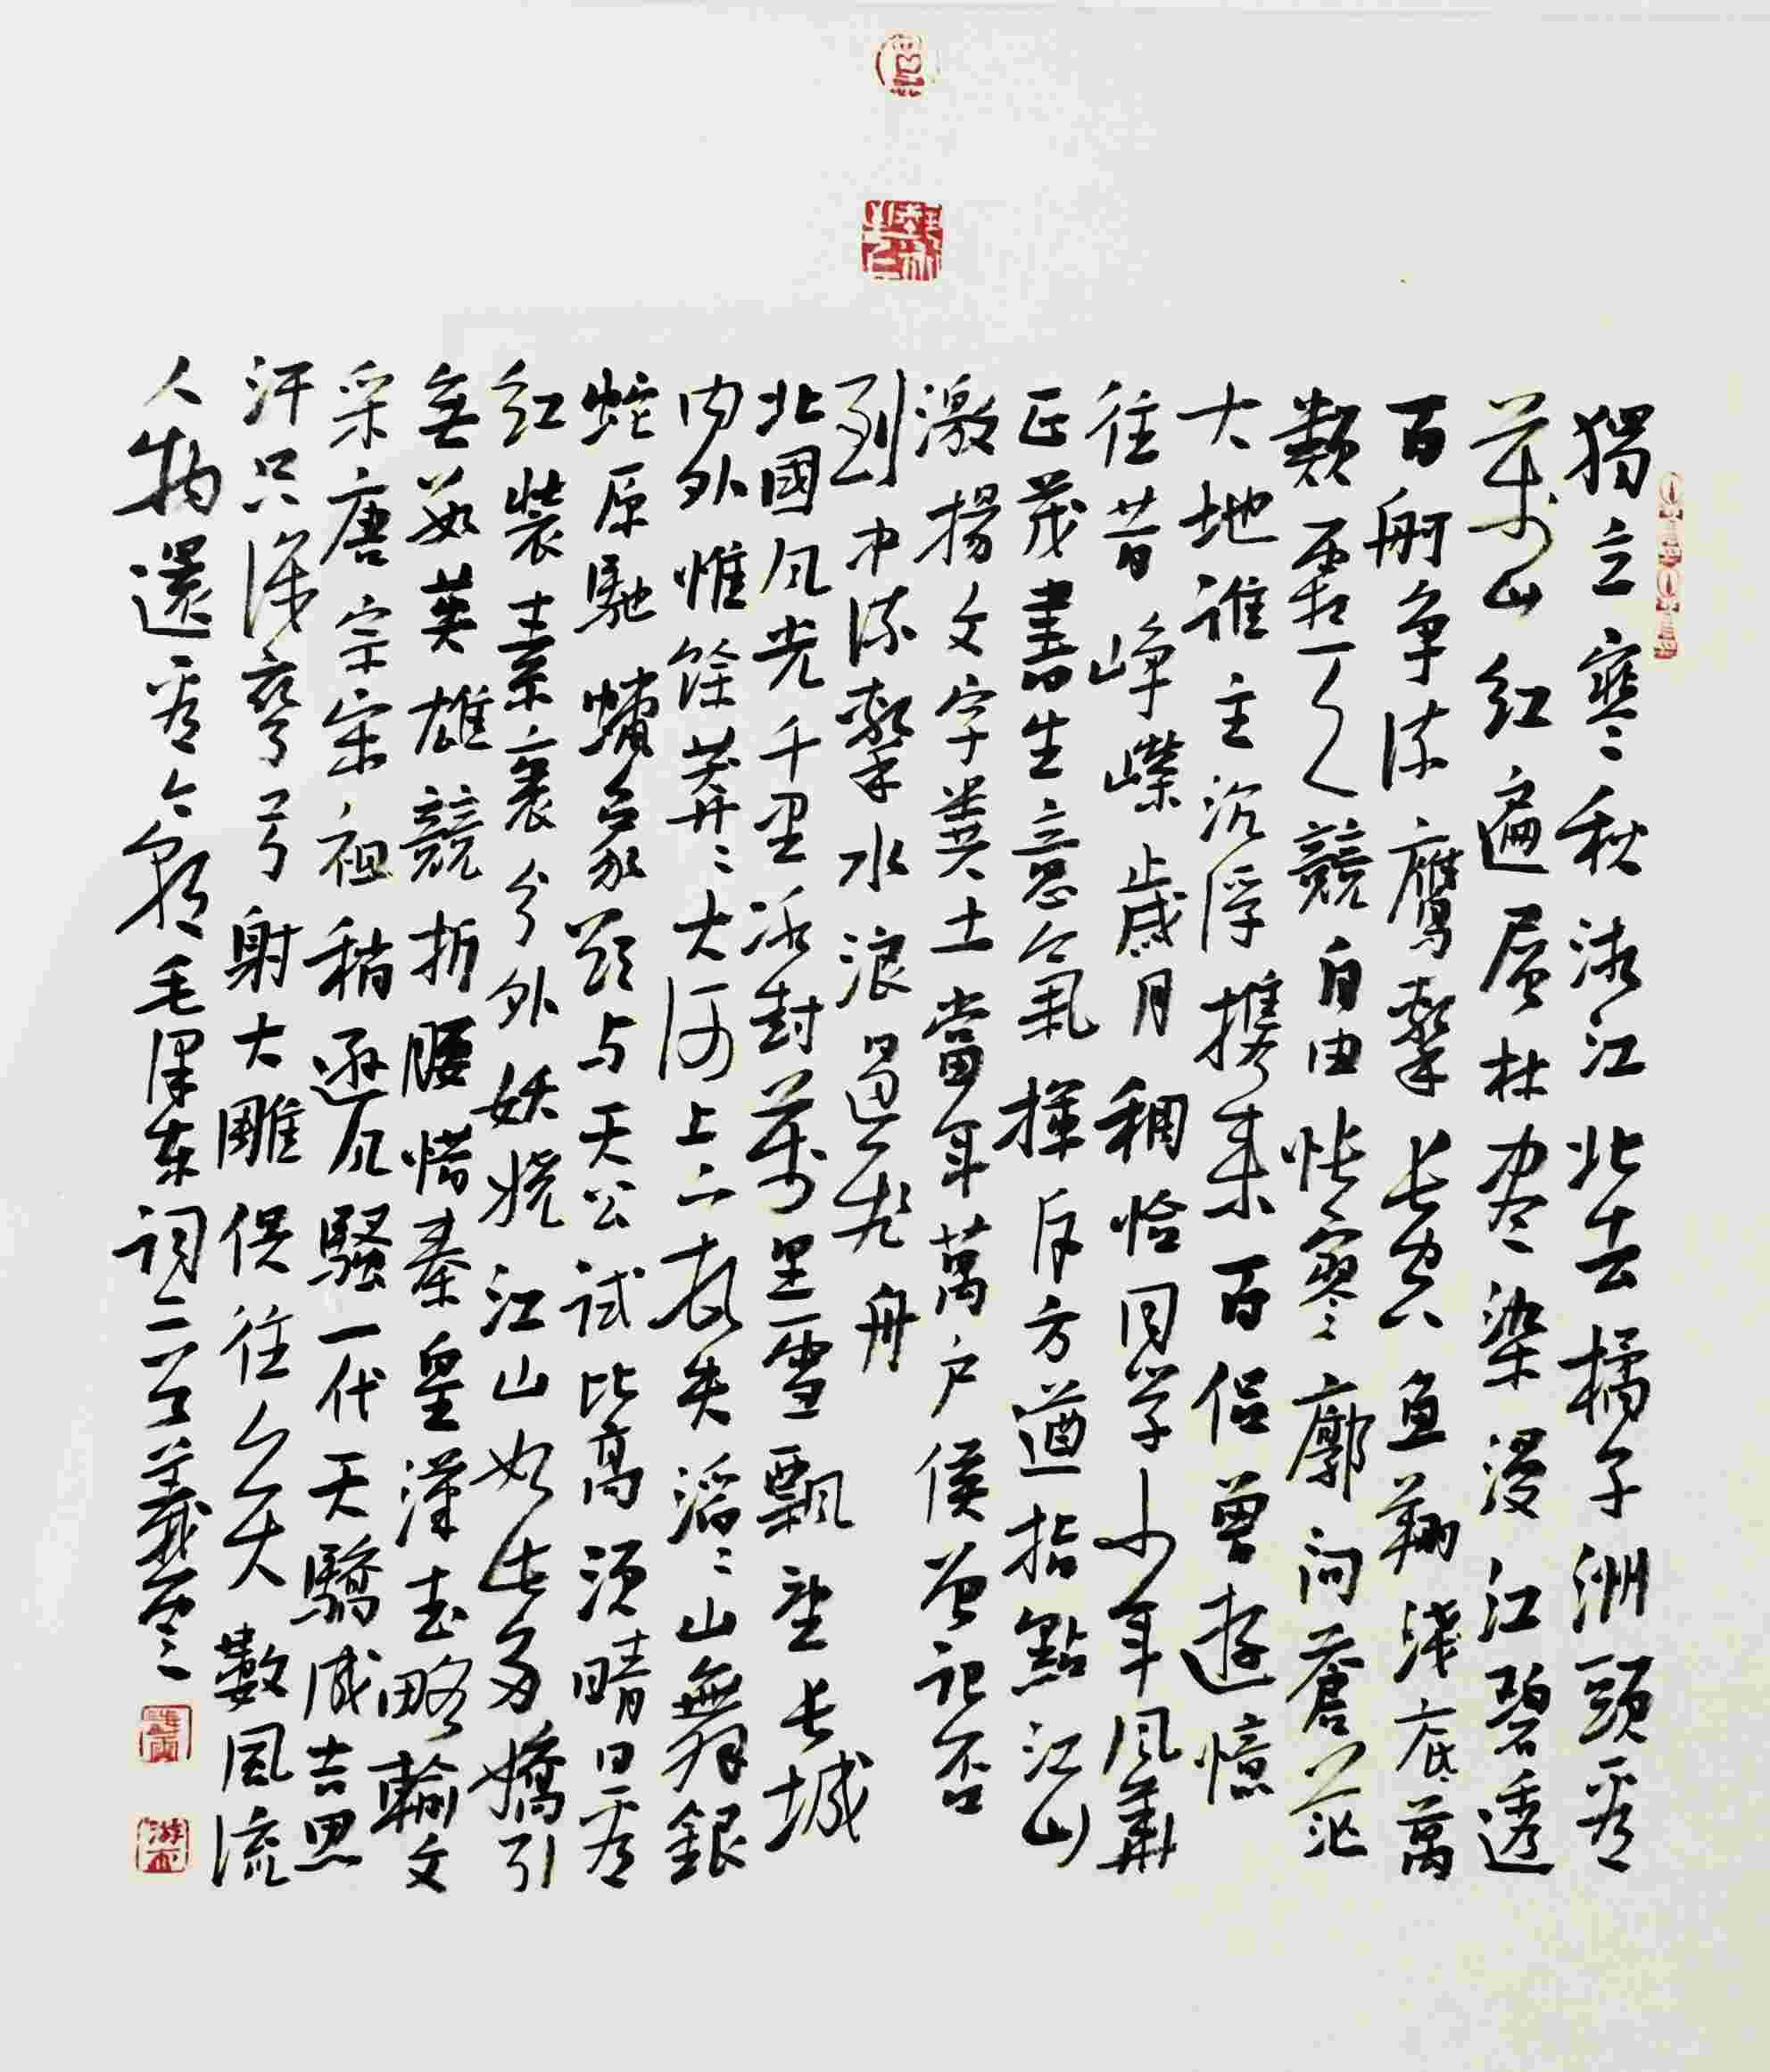 獨立寒秋湘江北去橘子洲頭看
万山红遍层林尽染漫江碧透
百舸争流鷹擊长空鱼翔淺底萬
類霜天競自由怅寥廓问蒼茫
大地谁主沉浮携来百侣曾遊憶
往昔峥嵘歲月稠恰同学少年风華
正茂書生意氣揮斥方遒指點江山
激揚文字糞土當年萬户侯曾记否
到中流擊水浪遏飞舟
北國风光千里冰封万里雪飄望长城
内外惟餘莽〻大河上下頓失滔〻山舞銀
蛇原馳蠟象欲与天公试比高须晴日看
红裝素裹分外妖娆江山如此多嬌引
無數英雄競折腰惜秦皇漢武略輸文
采唐宗宋祖稍逊风騷一代天驕成吉思
汗只識彎弓射大雕俱往矣數風流
人物還看今朝毛泽东词二首